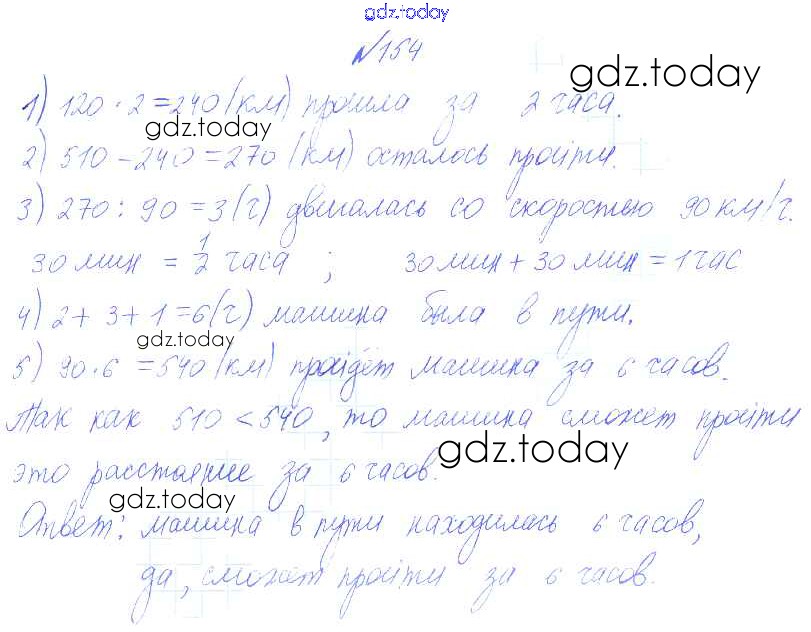 gdz.today
№154
gdz.today
1) 120 · 2 = 240 (км) прошла за 2 часа.
gdz.today
2) 510 - 240 = 270 (км) осталось пройти.
3) 270 : 90 = 3 (ч) двигалась со скоростью 90 км/ч.
30 мин = 1/2 часа ; 30 мин + 30 мин = 1 час
4) 2 + 3 + 1 = 6 (ч) машина была в пути.
gdz.today
5) 90 · 6 = 540 (км) пройдёт машина за 6 часов.
Так как 510 < 540, то машина сможет пройти
gdz.today
это расстояние за 6 часов.
gdz.today
Ответ: машина в пути находилась 6 часов,
да, сможет пройти за 6 часов.
gdz.today
gdz.today